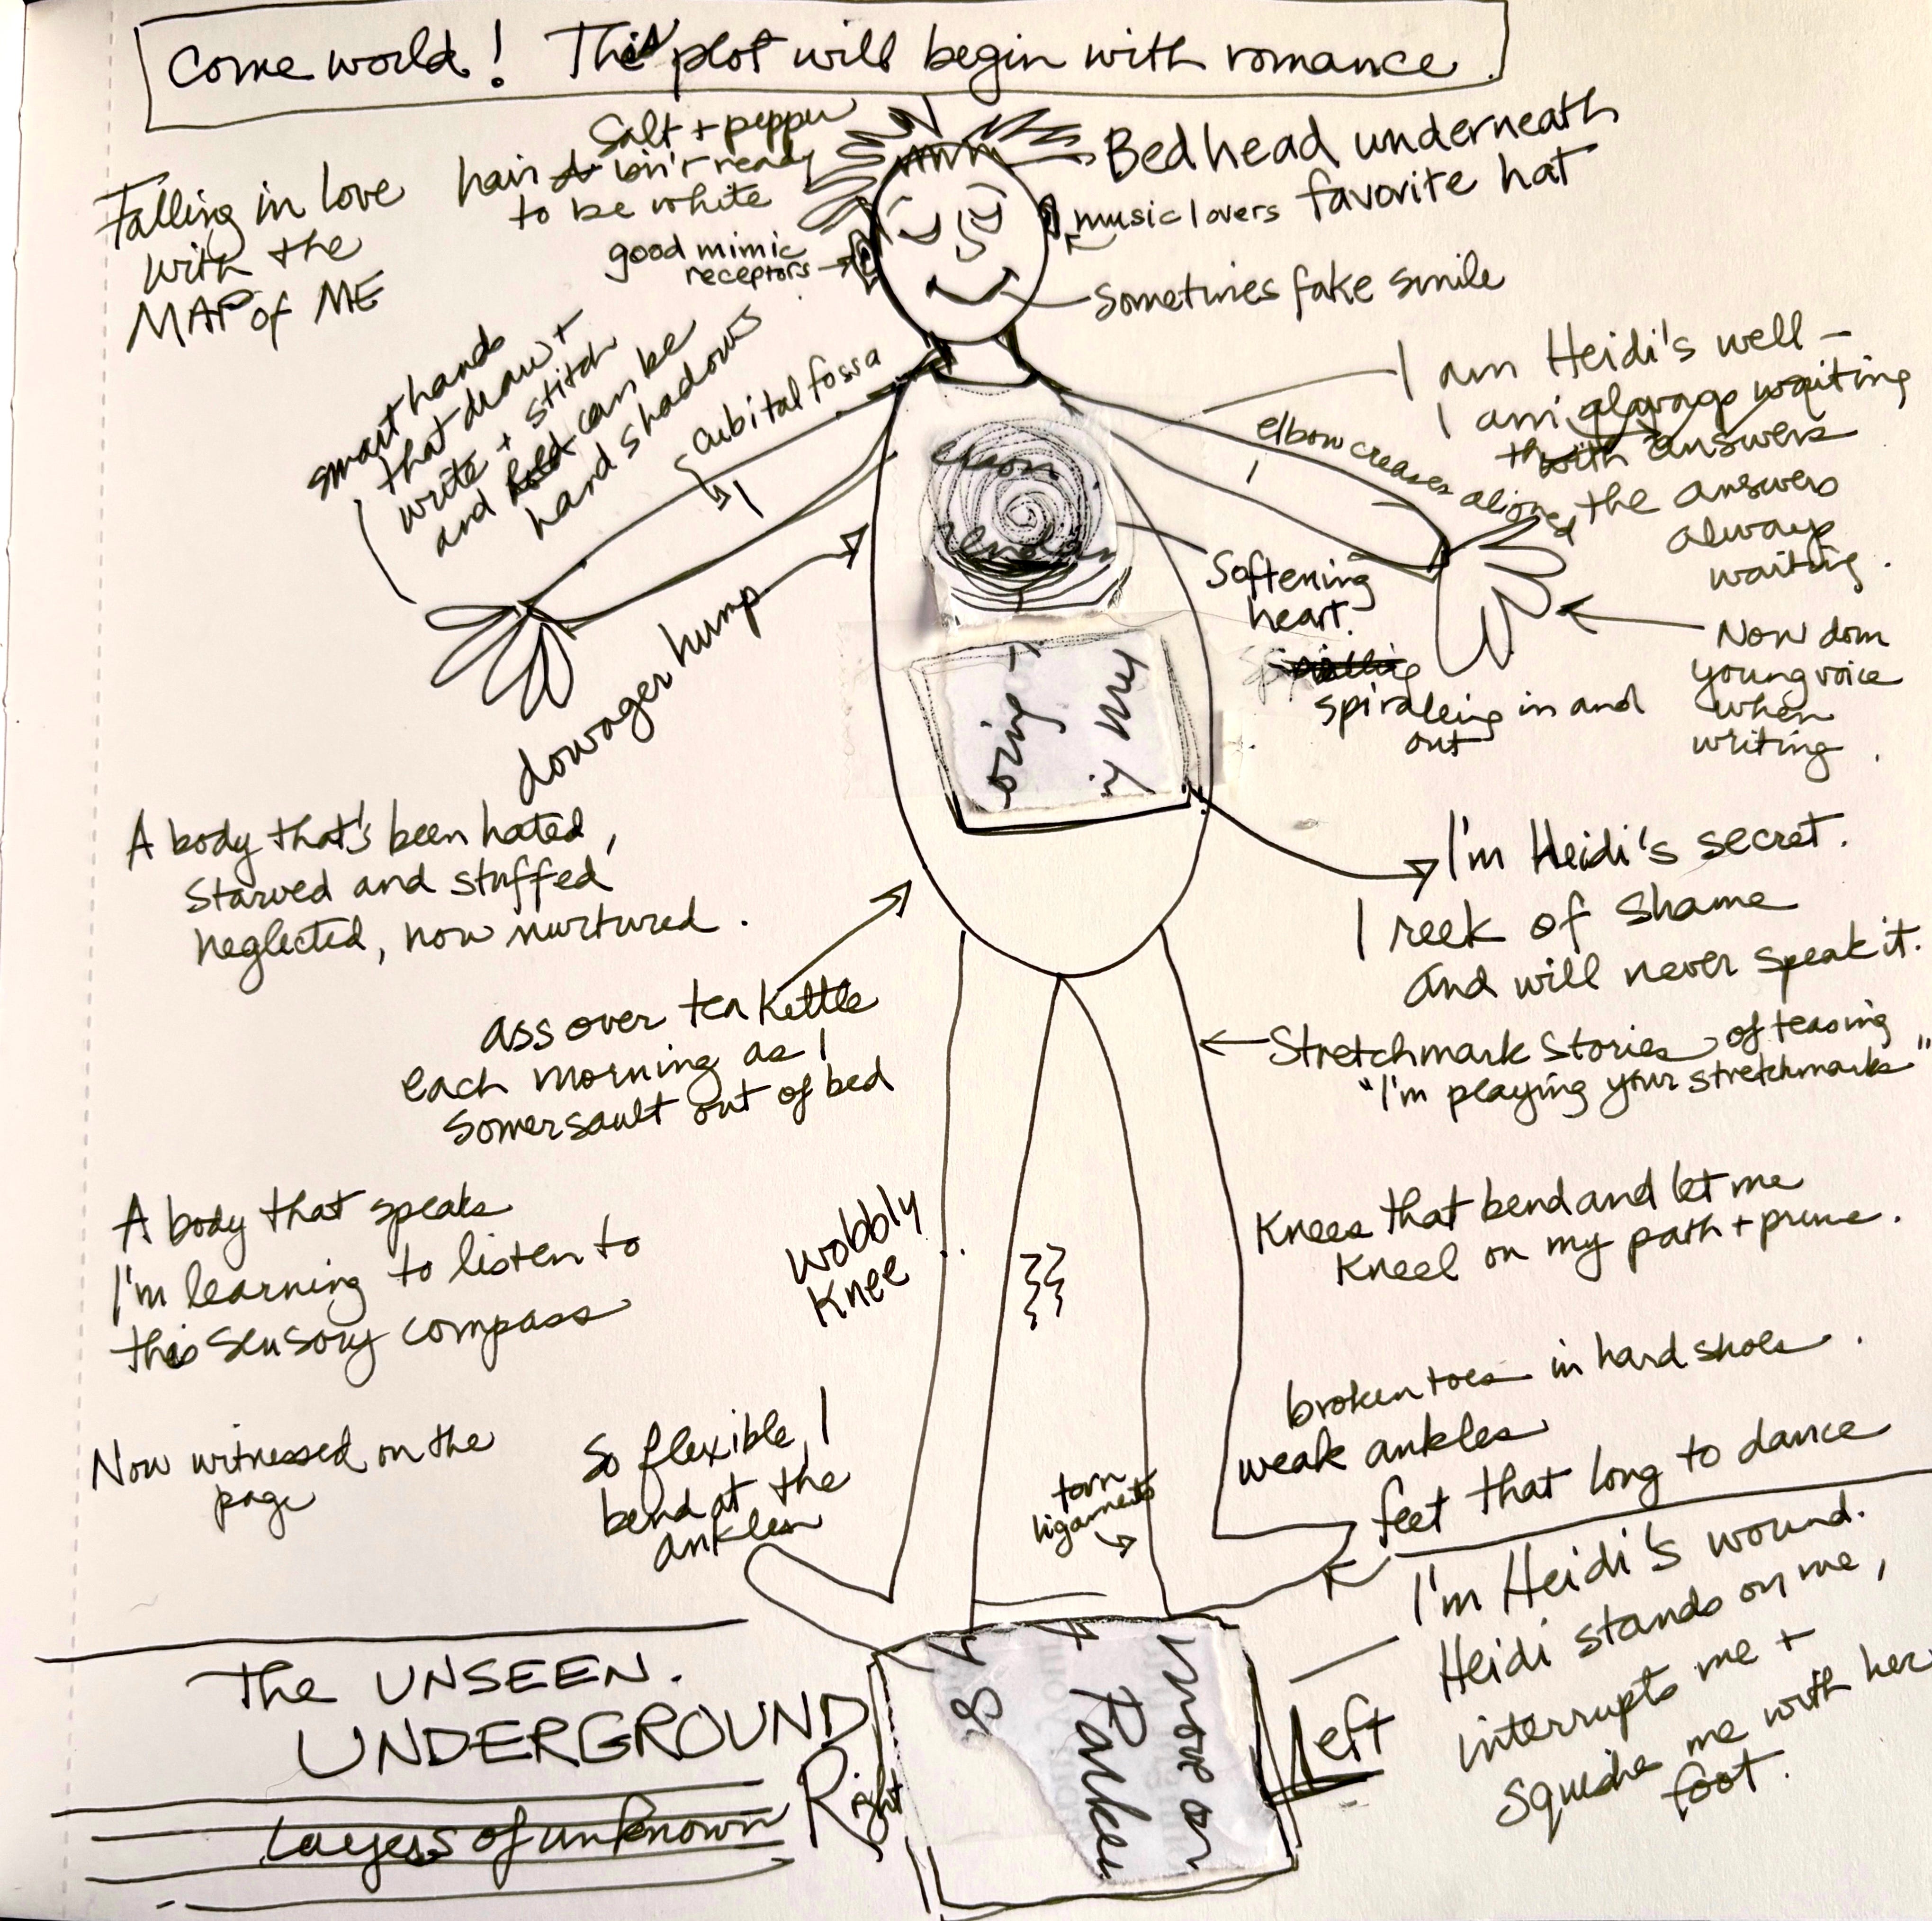 Come world! This plot will begin with romance.
Falling in love
with the
MAP of ME
Salt + pepper
hair isn't ready
to be white
good mimic
receptors
Bedhead underneath
favorite hat
music lovers
Sometimes fake smile
smart hands
that draw +
write + stitch
and hold can be
hand shadows
cubital fossa
I am Heidi's well –
I am always waiting
with answers
the answers
always
waiting.
elbow creases aligned
Softening
heart.
spiralling
spiralling in and
out
Non dom
young voice
when
writing.
dowager hump
oing
my
I'm Heidi's secret.
I reek of shame
and will never speak it.
A body that's been hated,
starved and stuffed
neglected, now nurtured.
ass over tea kettle
each morning as I
somersault out of bed
Stretchmark stories of teasing
"I'm playing your stretchmarks"
A body that speaks
I'm learning to listen to
this sensory compass
wobbly
knee
Knees that bend and let me
kneel on my path + prune.
broken toes in hard shoes.
weak ankles
feet that long to dance
Now witnessed on the
page
So flexible, I
bend at the
ankles
torn
ligaments
I'm Heidi's wound.
Heidi stands on me,
interrupts me +
squishes me with her
foot.
The UNSEEN.
UNDERGROUND
Layers of unknown
Right
Left